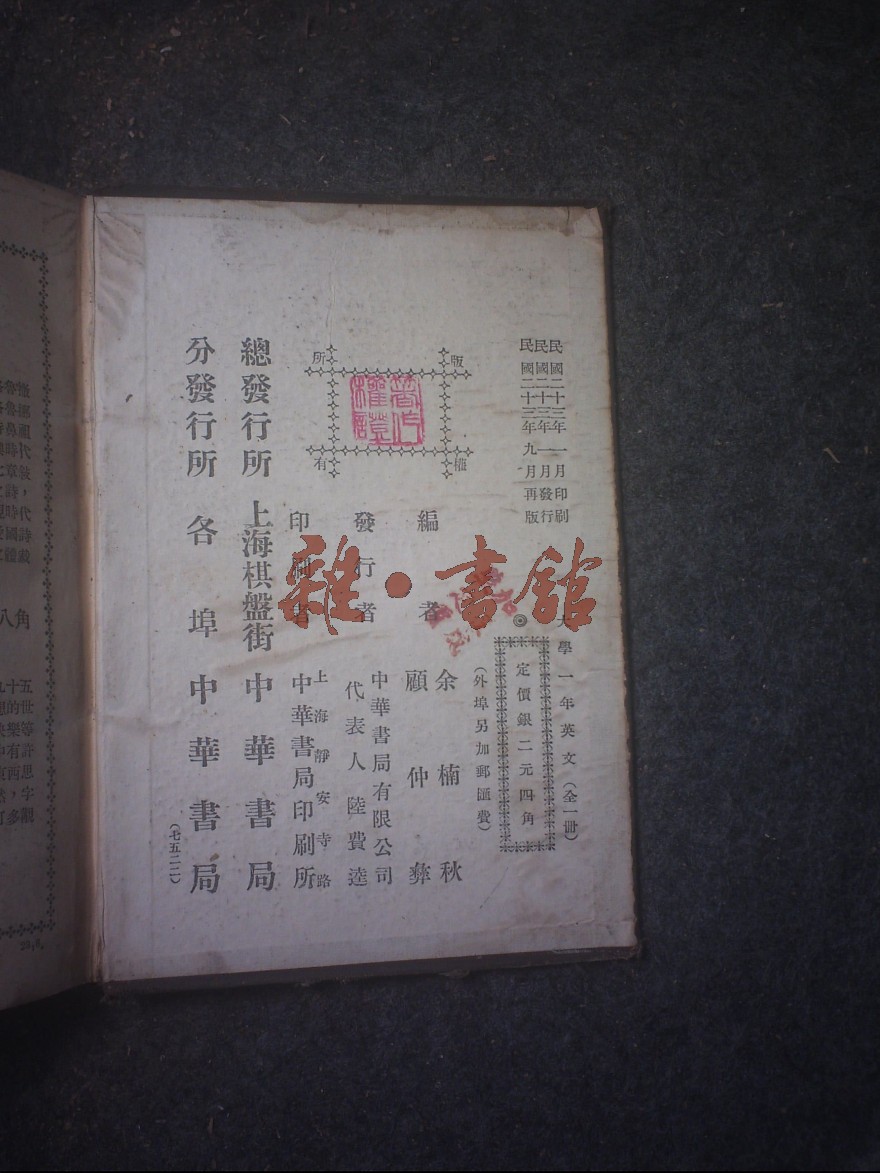 民國二十三年一月印刷
民國二十三年一月發行
民國二十三年九月再版
大學一年英文(全一冊)
◎
定價銀二元四角
(外埠另加郵匯費)
版權
所有
著作權證
編者
余楠秋
顧仲彝
發行者
中華書局有限公司
代表人陸費逵
印刷者
上海靜安寺路
中華書局印刷所
總發行所 上海棋盤街 中華書局
分發行所 各埠 中華書局
(七五二二)
雜·書館
八角